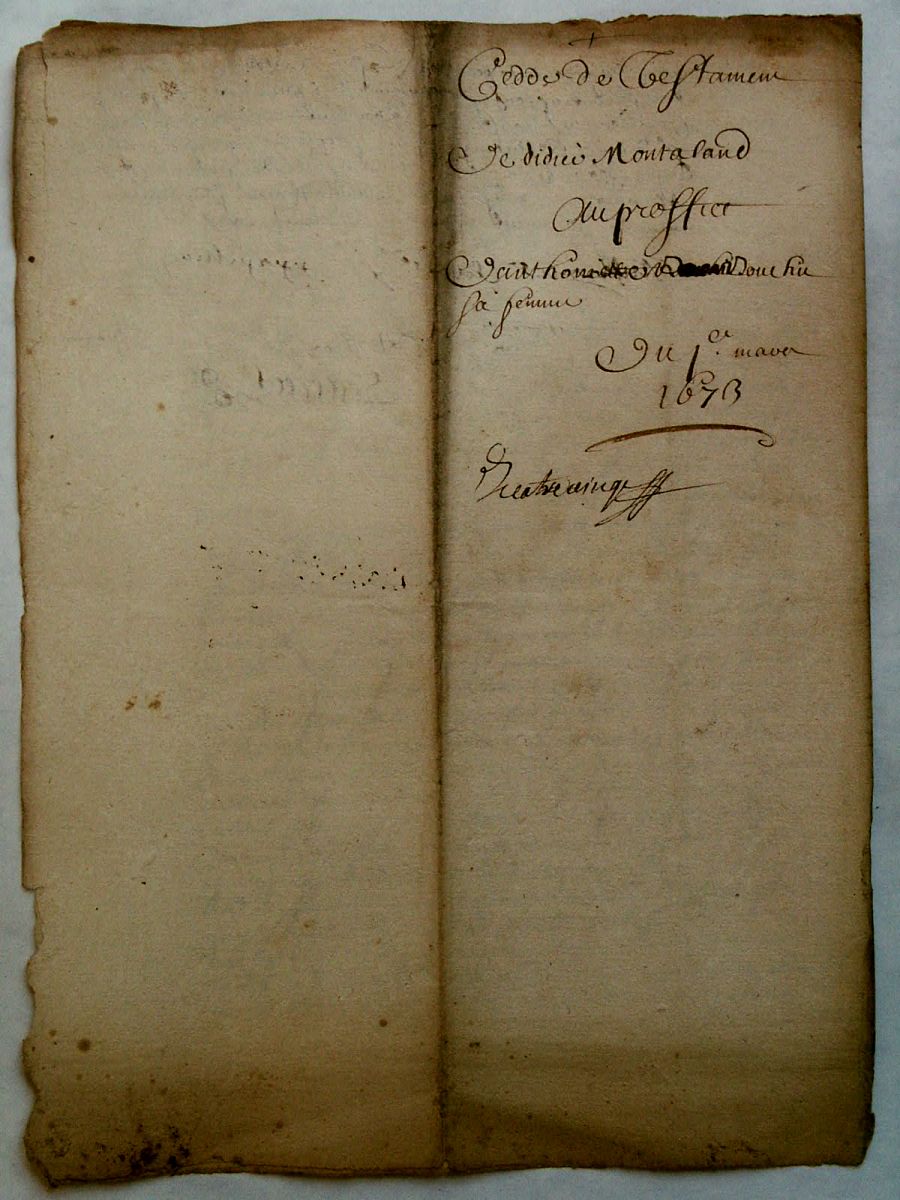 Cedde de Testament
De didier Montaland
Au proffict
D'anthoinette Douchie
Sa femme
Du 1er mars
1673